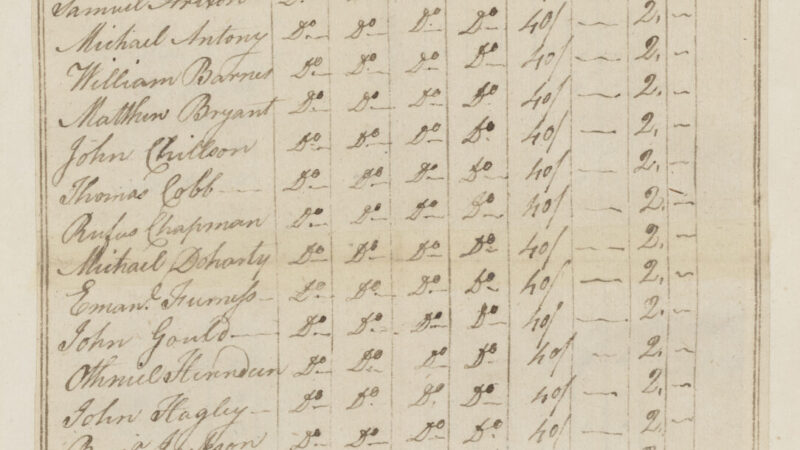 Samuel D.o
Michael Antony D.o D.o D.o D.o 40/ — 2. —
William Barnes D.o D.o D.o D.o 40/ — 2. —
Matthew Bryant D.o D.o D.o D.o 40/ — 2. —
John Chillson D.o D.o D.o D.o 40/ — 2. —
Thomas Cobb D.o D.o D.o D.o 40/ — 2. —
Rufus Chapman D.o D.o D.o D.o 40/ — 2. —
Michael Doharty D.o D.o D.o D.o 40/ — 2. —
Eman.l Furness D.o D.o D.o D.o 40/ — 2. —
John Gould D.o D.o D.o D.o 40/ — 2. —
Othniel Hinndun D.o D.o D.o D.o 40/ — 2. —
John Hagley D.o D.o D.o D.o 40/ — 2. —
D.o D.o D.o D.o 40/ — 2. —